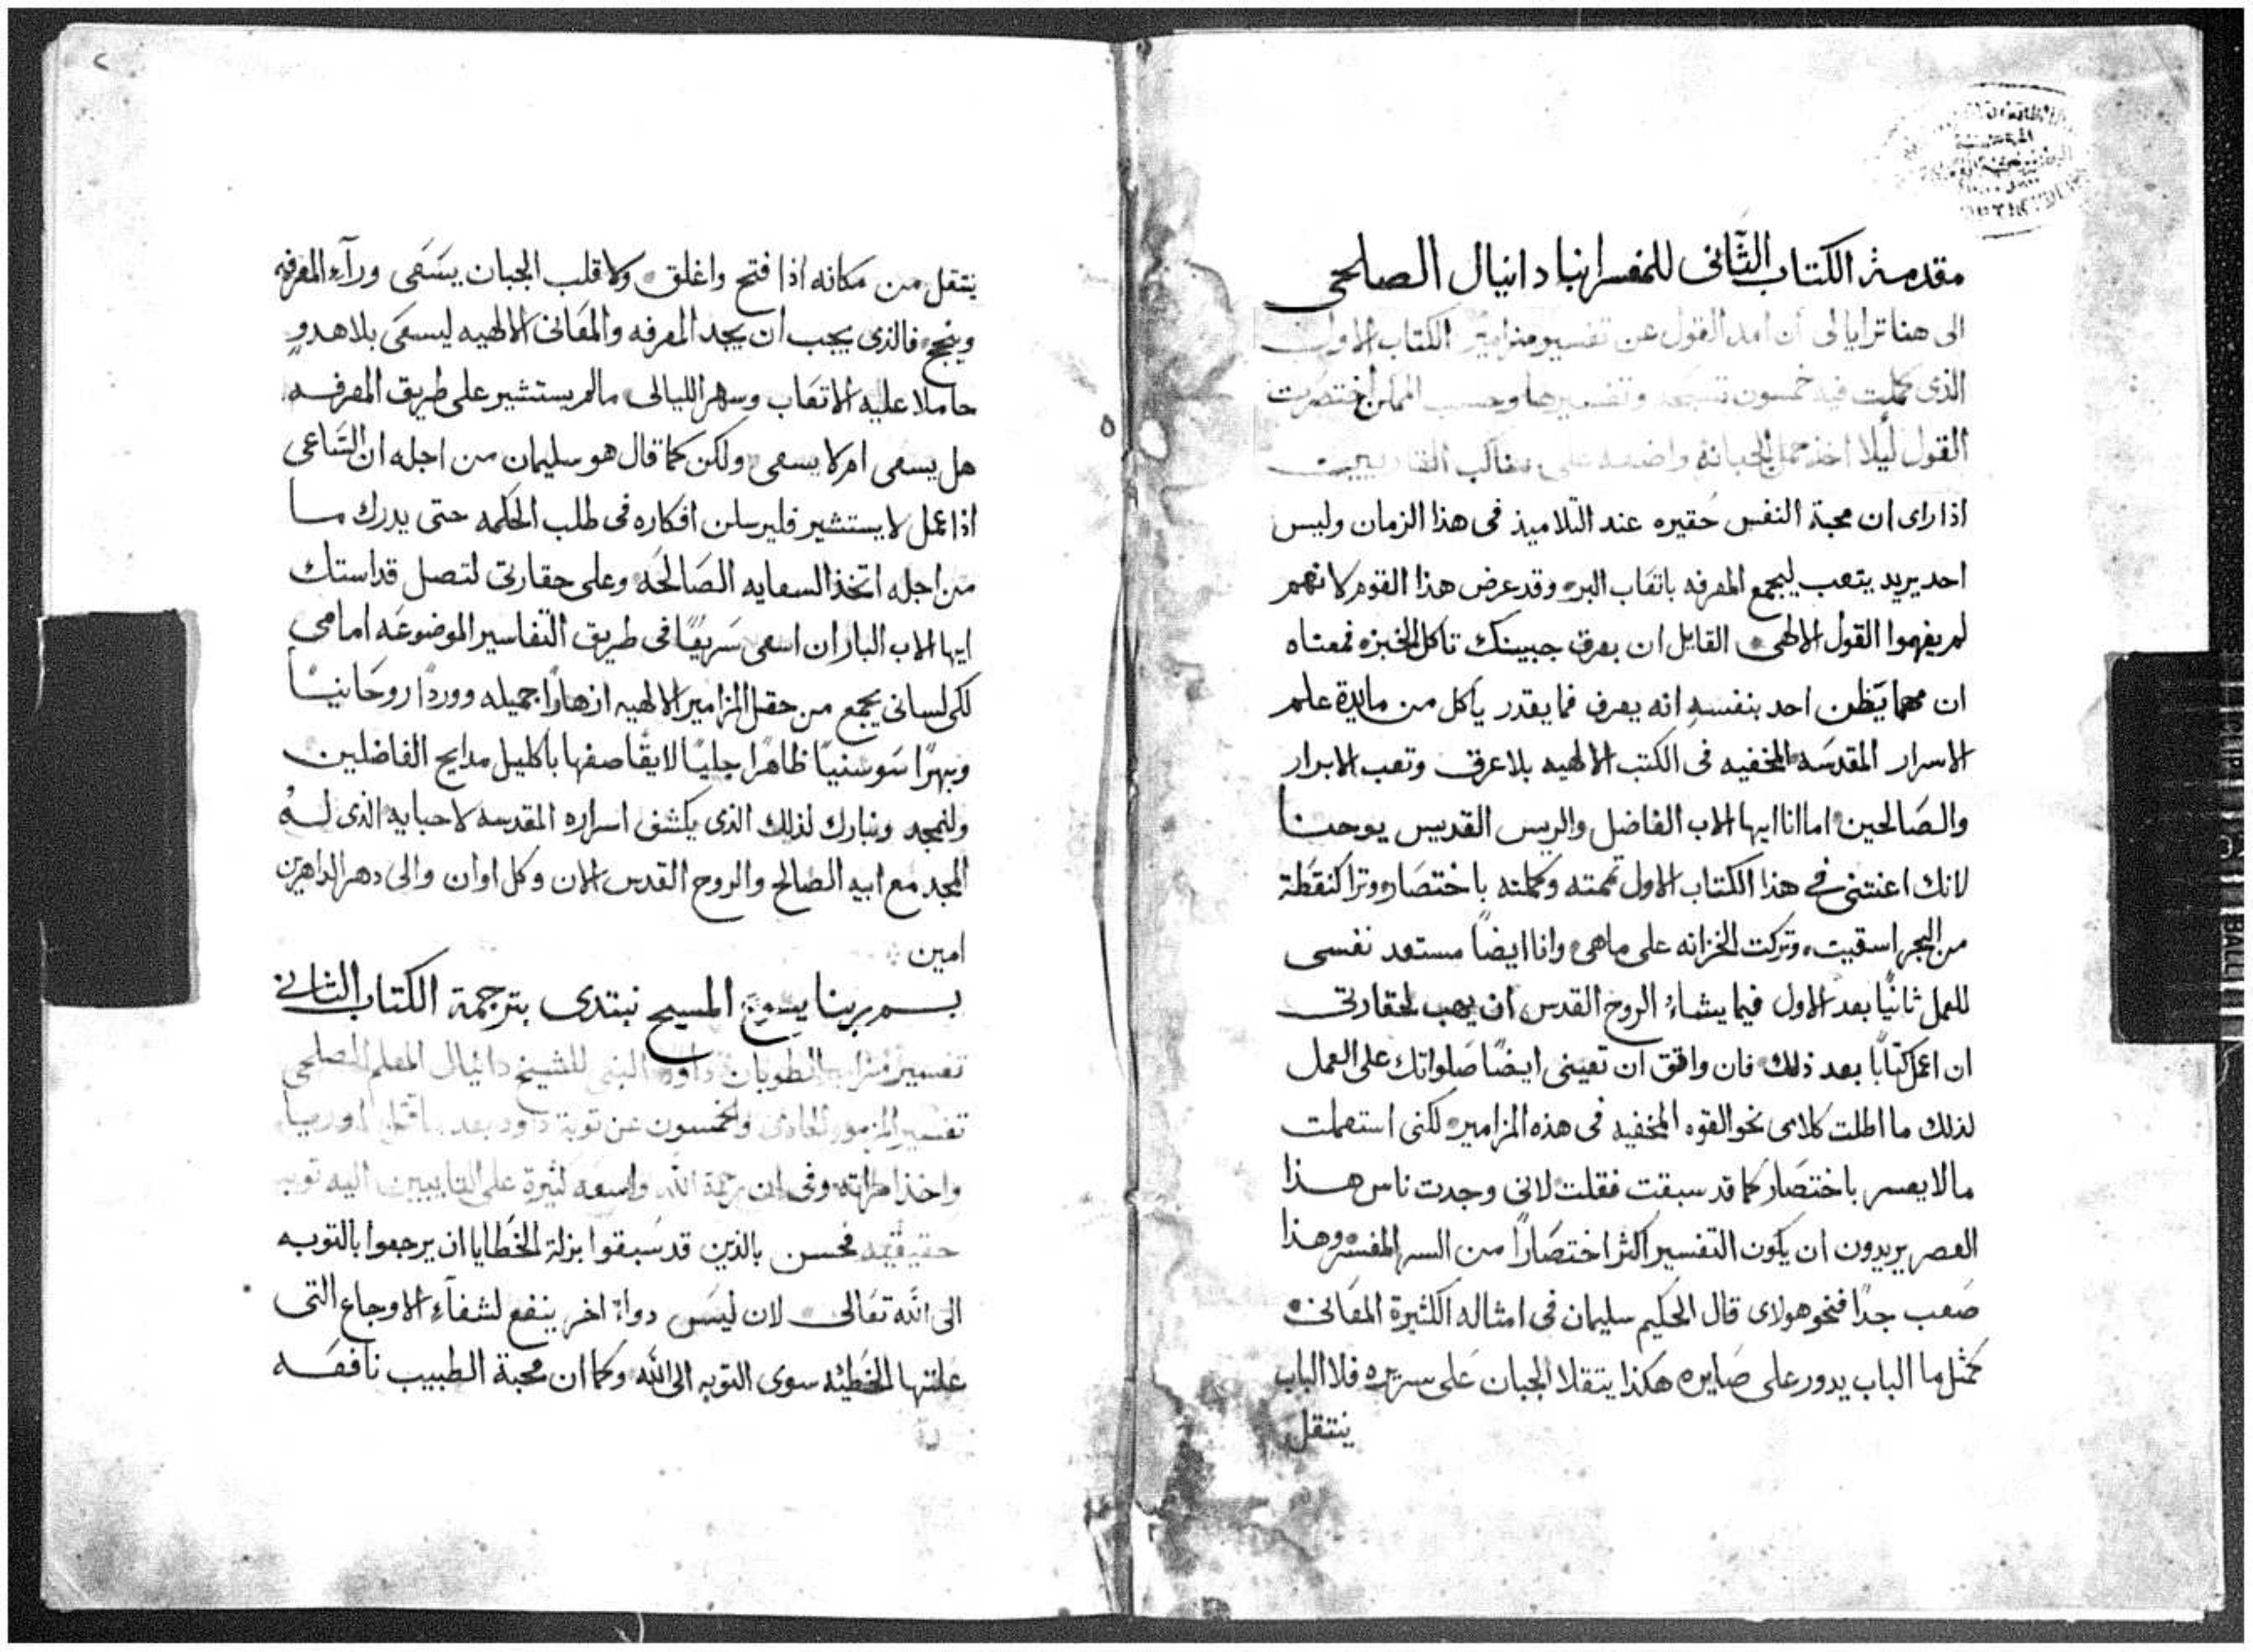 مقدمة الكتاب الثاني للمفسر انبا دانيال الصلحي
الى هنا ترايا لى أن امد القول عن تفسير مزامير الكتاب الاول
الذى كملت فيه خمسون تسبحه وتفسيرها وحسب الممكن اختصرت
القول ليلا اخذ حمل الجبانه واضعه على
اذا راى ان محبة النفس حقيره عند التلاميذ فى هذا الزمان وليس
احد يريد يتعب ليجمع المعرفه باتعاب البر وقد عرض هذا القوم لانهم
لم يفهموا القول الالهى القايل ان بعرق جبينك تاكل الخبزه فمعناه
ان مهما يَظن احد بنفسهِ انه يعرف فما يقدر ياكل من مايدة علم
الاسرار المقدسَه المخفيه فى الكتب الالهيه بلا عرق وتعب الابرار
والصَالحين اما انا ايها الاب الفاضل والريس القديس يوحنا
لانك اعنتنى فى هذا الكتاب الاول تممته وكملته باختصَار وترا كنقَطة
من البحر اسقيت وتركت الخزانه على ماهى وانا ايضاً مستعد نفسى
للعمل ثانيًا بعد الاول فيما يشاءُ الروح القدس ان يهب لحقارتى
ان اعمل كتابًا بعد ذلك فان وافق ان تعيننى ايضًا صَلواتك على العمل
لذلك ما اطلت كلامى نحو القوه المخفيه فى هذه المزامير لكنى استعملت
مالا يعسر باختصَار كما قد سبقت فقلت لانى وجدت ناس هذا
العصر يريدون ان يكون التفسير اكثر اختصَارًا من السر المفسَّر وهذا
صَعب جدًا فنحو هولاى قال الحكيم سليمان فى امثاله الكثيرة المعَانى
كمثل ما الباب يدور على صَايره هكذا يتقلا الجبان عَلى سريره فلا الباب
ينتقل
٢
ينتقل من مكانه اذا فتح واغلق ولا قلب الجبان يسَعَى ورآء المعرفه
وينجح فالذى يجب ان يجد المعرفه والمعَانى الالهيه ليسعَى بلا هدوٍ
حاملا عليه الاتعَاب وسهر الليالى مالم يستشير على طريق المعرفه
هل يسعى ام لا يسعى ولكن كما قال هو سليمان من اجله ان السَّاعى
اذا عمل لا يستشير فليرسلن افكاره فى طلب الحكمه حتى يدرك ما
من اجله اتخذ السعايه الصَالحَه وعلى حقارتى لتصل قداستك
ايها الاب البار ان اسعى سَريعًا فى طريق التفاسير الموضوعَه امامى
لكى لسانى يجمع من حقل المزامير الالهيه ازهارًا جميله ووردًا روحَانيًا
وبهرًا سَوسنيًا ظاهرًا جليًا لايقًا صفها باكليل مدايح الفاضلين
ولنمجد ونبارك لذلك الذى يكشف اسراره المقدسه لاحبايه الذى لهُ
المجد مع ابيه الصالح والروح القدس الان وكل اوان والى دهر الداهرين
امين
بسم ربنا يسوع المسيح نبتدى بترجمة الكتاب الثانى
تفسير مزامير الطوبان داود النبى للشيخ دانيال المعلم الصلحى
تفسير المزمور الحادى والخمسون عن توبة داود بعد ما قتل اوريا
واخذ امراته وفى ان رحمة الله واسعه كثيرة على التايبين اليه توبه
حقيقيه فحسن بالذين قد سَبقوا بزلة الخَطايا ان يرجعوا بالتوبه
الى الله تعَالى لان ليسَ دواءً اخر ينفع لشفآءِ الاوجاع التى
عَلتها الخَطيئه سوى التوبه الى الله وكما ان محبة الطبيب نافعَه